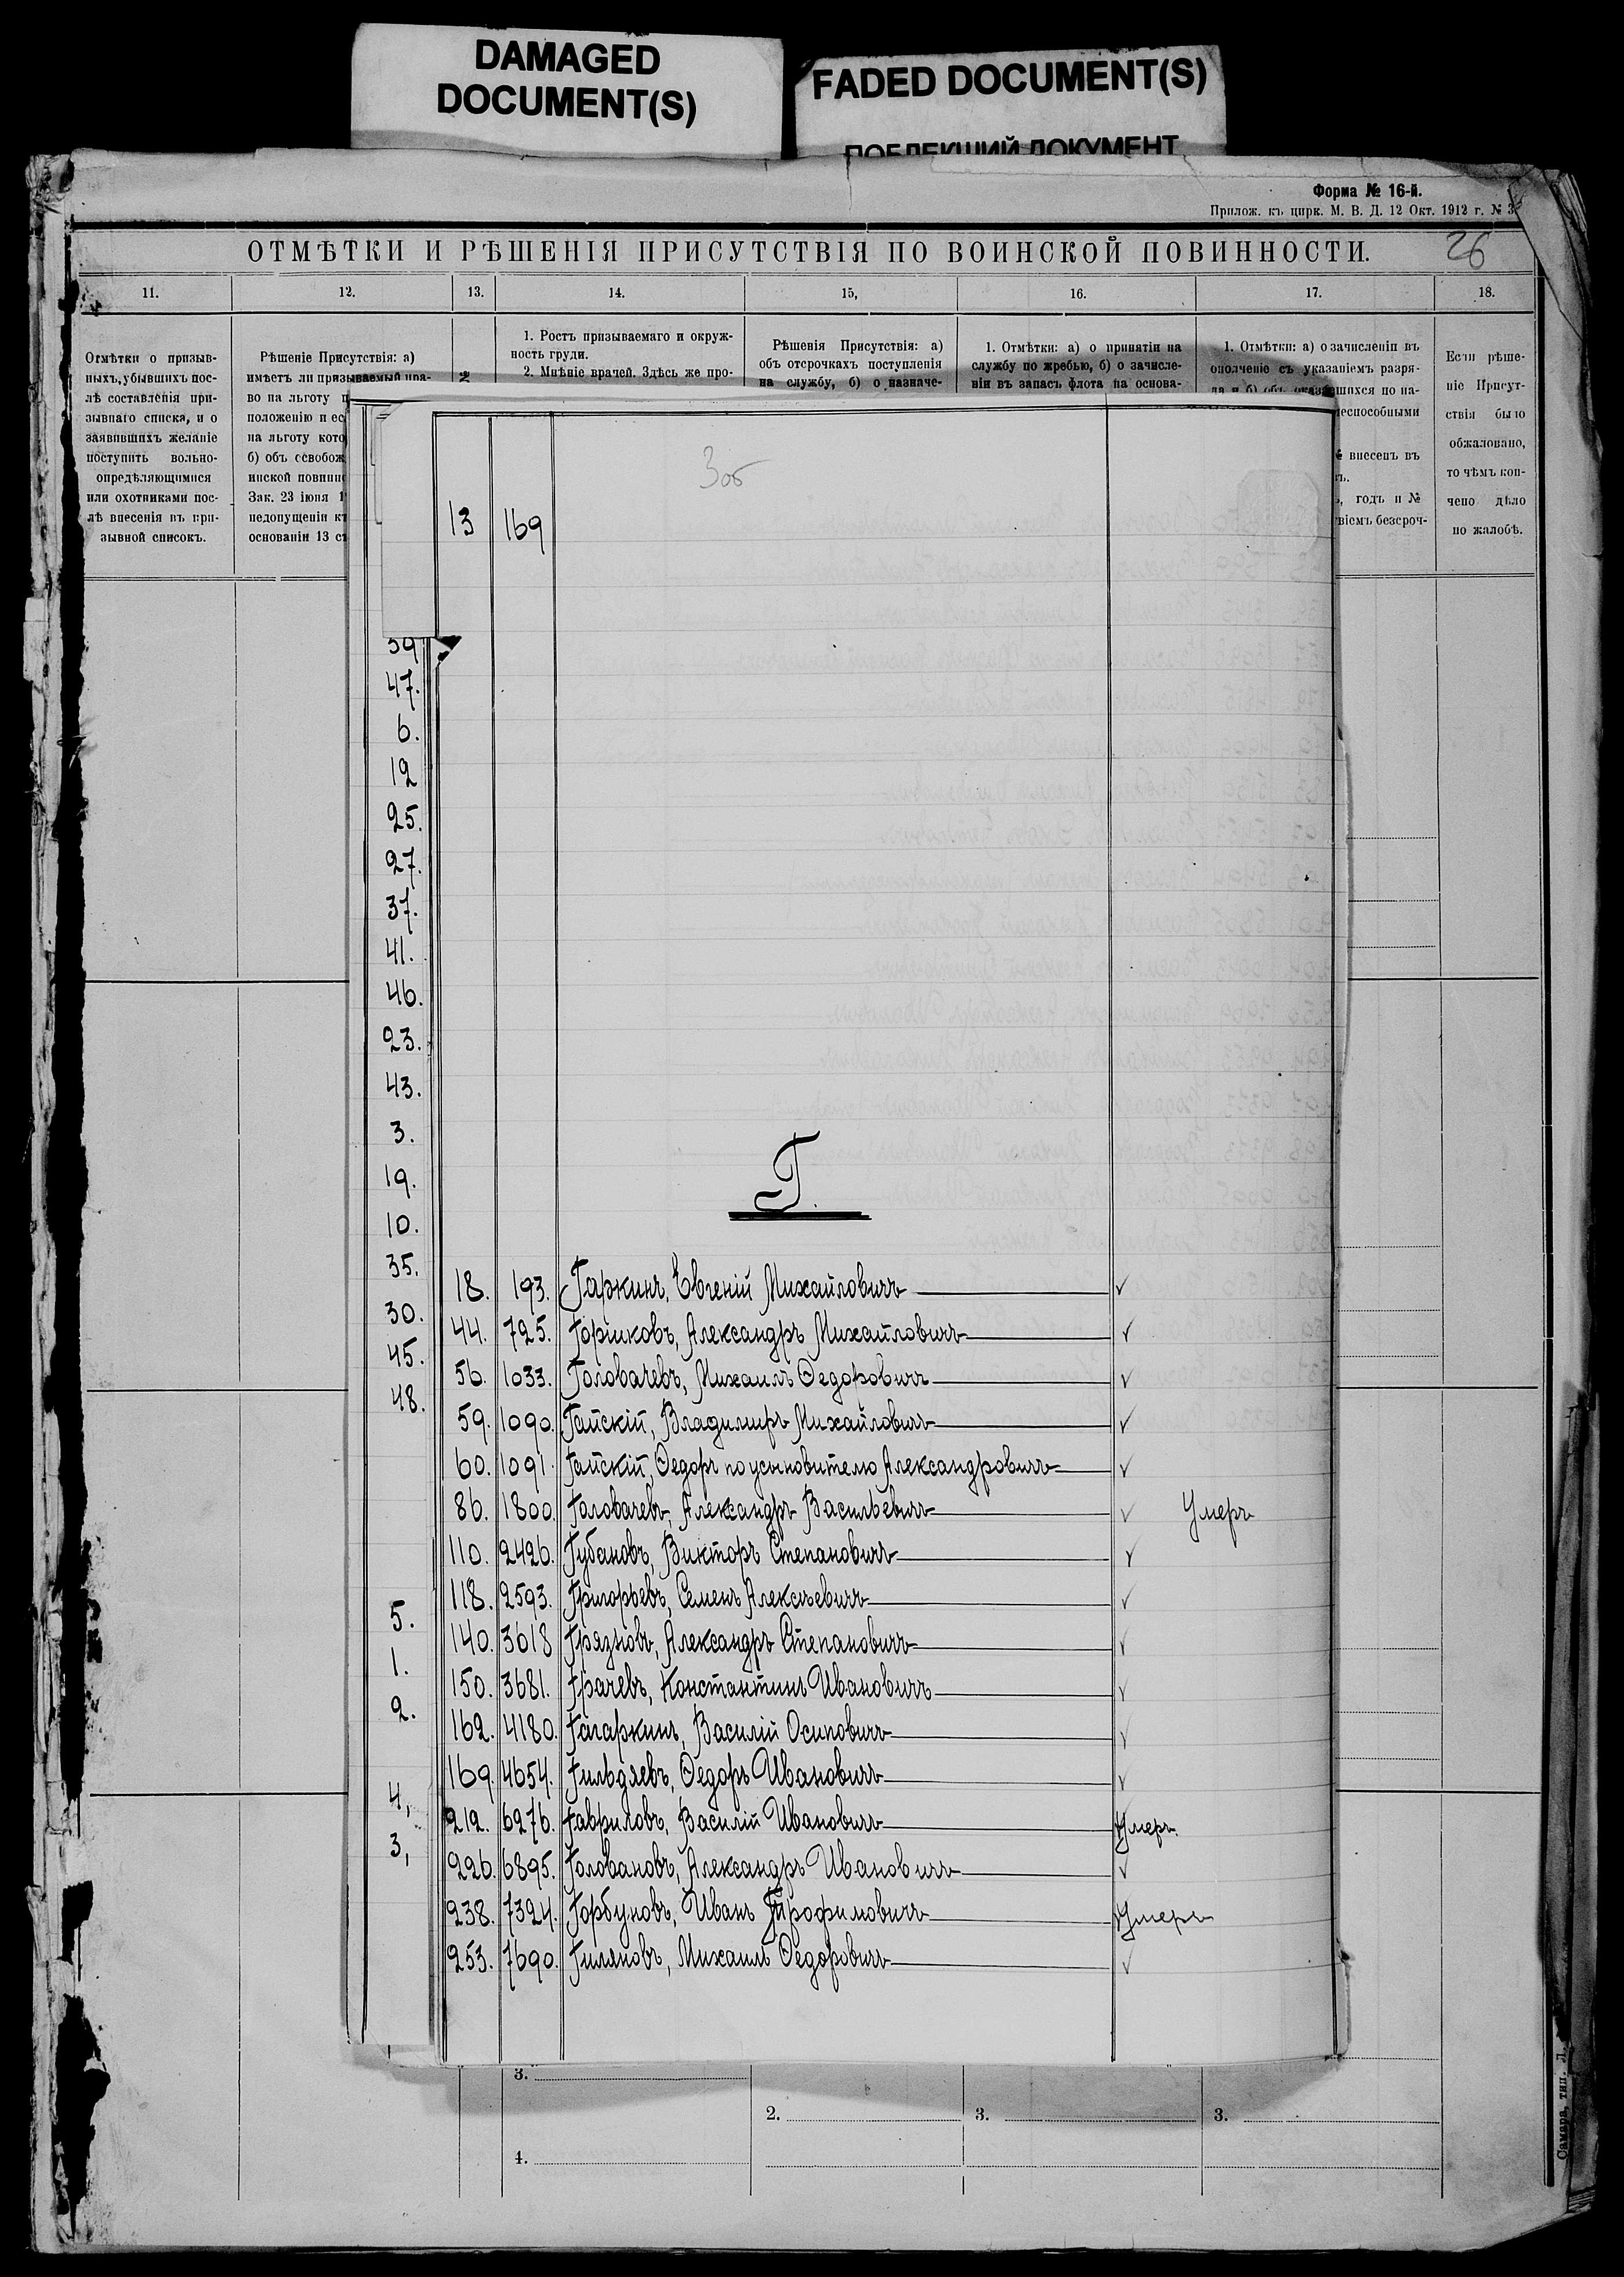 DAMAGED
DOCUMENT(S)
FADED DOCUMENT(S)
ПОБЛЕКШИЙ ДОКУМЕНТ
Форма № 16-й.
Прилож. къ цирк. М. В. Д. 12 Окт. 1912 г. № 3
ОТМѢТКИ И РѢШЕНІЯ ПРИСУТСТВІЯ ПО ВОИНСКОЙ ПОВИННОСТИ.
26
11. 12. 13. 14. 15, 16. 17. 18.
Отмѣтки о призыв-
ныхъ, убывшихъ пос-
лѣ составленія при-
зывнаго списка, и о
заявившихъ желаніе
поступить вольно-
опредѣляющимися
или охотниками пос-
лѣ внесенія въ при-
зывной списокъ.
Рѣшеніе Присутствія: а)
имѣетъ ли призываемый пра-
во на льготу п
положенію и ес
на льготу кото
б) объ освобож
инской повинн
Зак. 23 іюня 1
недопущеніи къ
основаніи 13 ст
№
1. Ростъ призываемаго и окруж-
ность груди.
2. Мнѣніе врачей. Здѣсь же про-
Рѣшенія Присутствія: а)
объ отсрочкахъ поступленія
на службу, б) о назначе-
1. Отмѣтки: а) о принятіи на
службу по жребью, б) о зачисле-
ніи въ запасъ флота на основа-
1. Отмѣтки: а) о зачисленіи въ
ополченіе съ указаніемъ разря-
да и б) объ оказавшихся по на-
неспособными
внесенъ въ
годъ и №
віемъ безсроч-
Если рѣше-
ніе Присут-
ствія было
обжаловано,
то чѣмъ кон-
чено дѣло
по жалобѣ.
13 169
39
47.
6.
12
25.
27.
37.
41.
46.
23.
43.
3.
19.
10.
35.
30.
45.
48.
5.
1.
2.
4,
3,
Г.
18. 193. Гаркинъ, Евгеній Михайловичъ ✓
44. 725. Горшковъ, Александръ Михайловичъ ✓
56. 1033. Головачевъ, Михаилъ Ѳедоровичъ ✓
59. 1090. Гайскій, Владимиръ Михайловичъ ✓
60. 1091. Гайскій, Ѳедоръ по усыновителю Александровичъ ✓
86. 1800. Головачевъ, Александръ Васильевичъ ✓ Умеръ
110. 2426. Губановъ, Викторъ Степановичъ ✓
118. 2593. Григорьевъ, Семенъ Алексѣевичъ ✓
140. 3618 Грязновъ, Александръ Степановичъ ✓
150. 3681. Грачевъ, Константинъ Ивановичъ ✓
162. 4180. Гагаркинъ, Василій Осиповичъ ✓
169. 4654. Гильдяевъ, Ѳедоръ Ивановичъ ✓
212. 6276. Гавриловъ, Василій Ивановичъ Умеръ.
226. 6895. Головановъ, Александръ Ивановичъ ✓
238. 7324. Горбуновъ, Иванъ Трофимовичъ Умеръ
253. 7690. Гиляновъ, Михаилъ Ѳедоровичъ ✓
3.
2. 3. 3.
4.
Самара, тип. Л.